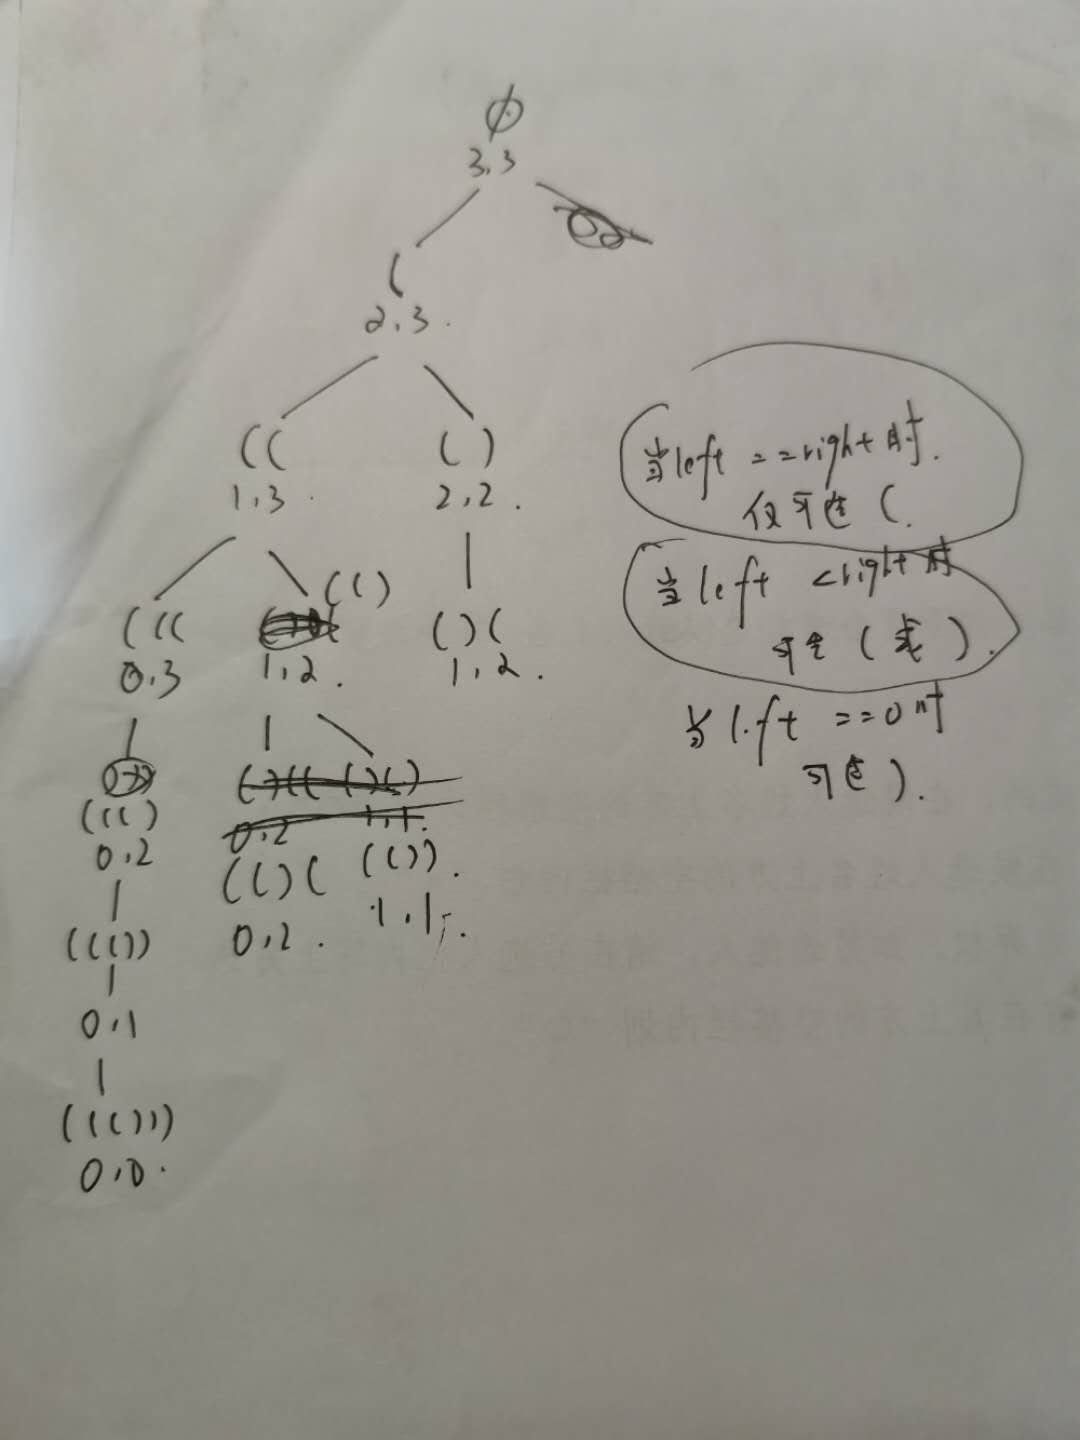 ∅
3,3
(
2,3.
(( ()
1,3. 2,2.
((( (() ()(
0,3 1,2. 1,2.
((()
0,2
(()( (()).
0,2. 1,1.
((())
0,1
((()))
0,0.
当left ==right时.
仅可选(.
当left <right时
可选(或).
当left ==0时
可选).